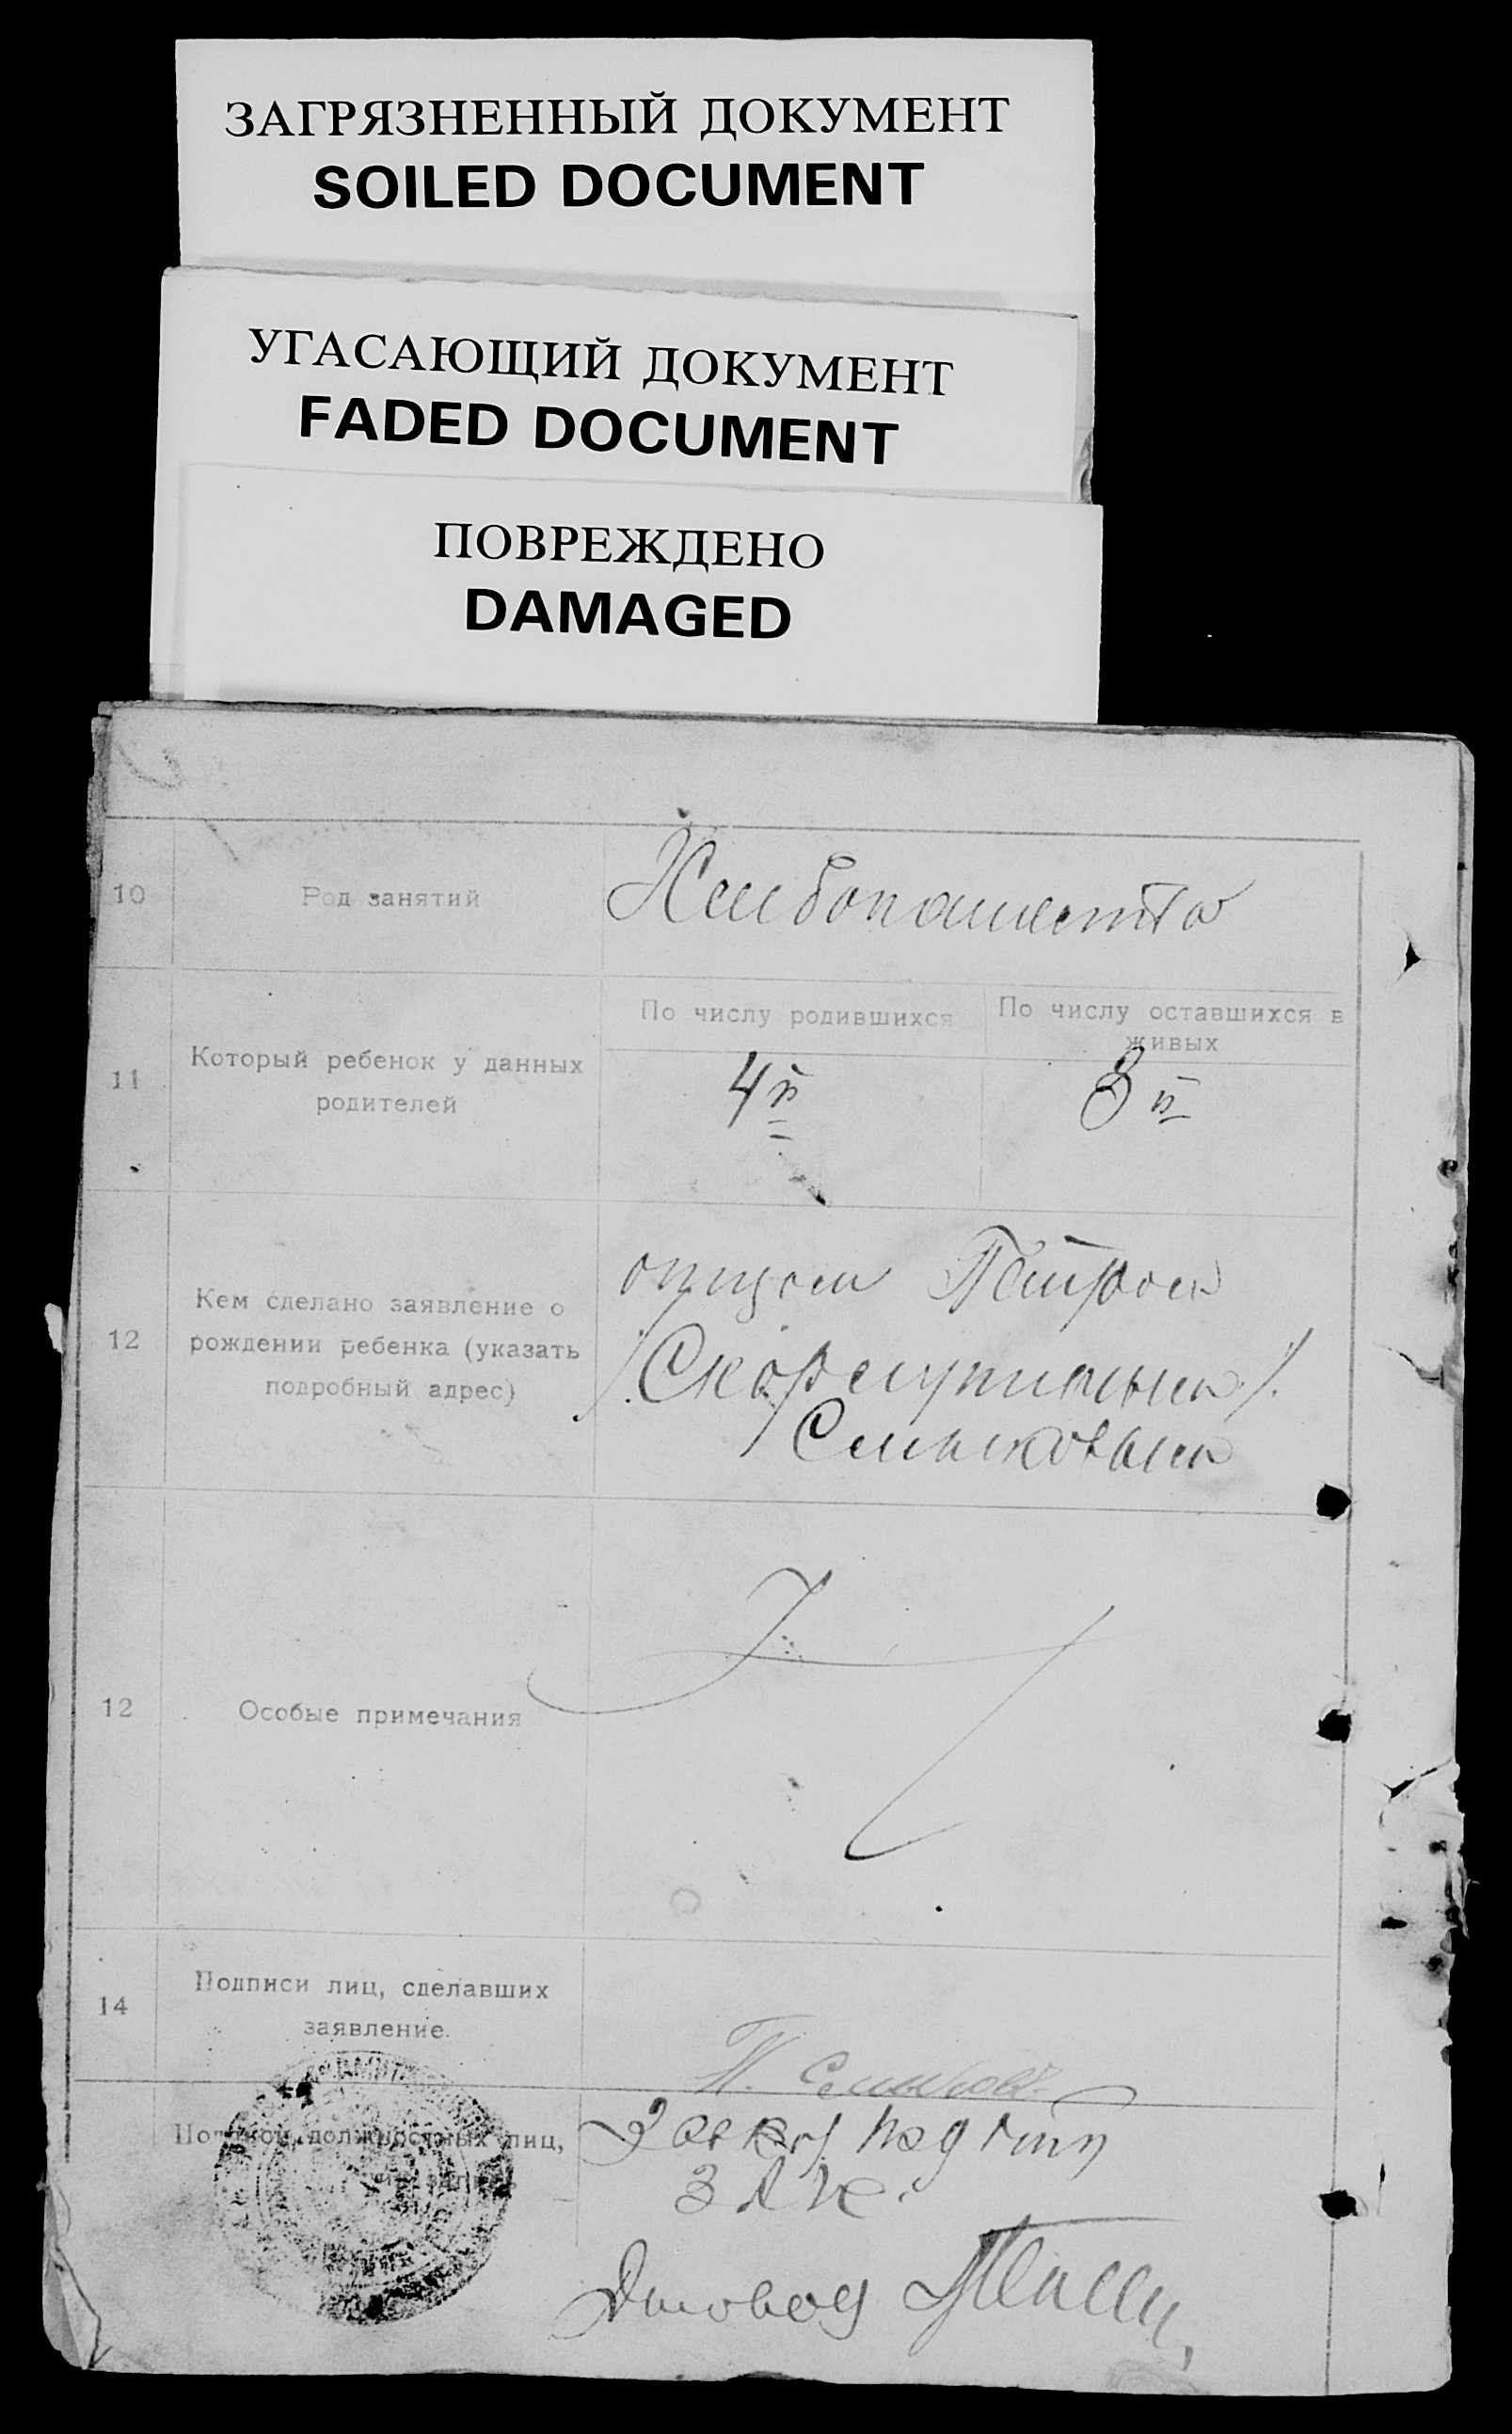 ЗАГРЯЗНЕННЫЙ ДОКУМЕНТ
SOILED DOCUMENT
УГАСАЮЩИЙ ДОКУМЕНТ
FADED DOCUMENT
ПОВРЕЖДЕНО
DAMAGED
10 Род занятий Хлебопашество
По числу родившихся По числу оставшихся в
живых
11 Который ребенок у данных
родителей
4й 3й
12 Кем сделано заявление о
рождении ребенка (указать
подробный адрес)
отцом Петром
Смыковым
12 Особые примечания
14 Подписи лиц, сделавших
заявление.
П. Смыков
должностных лиц,
Деловод